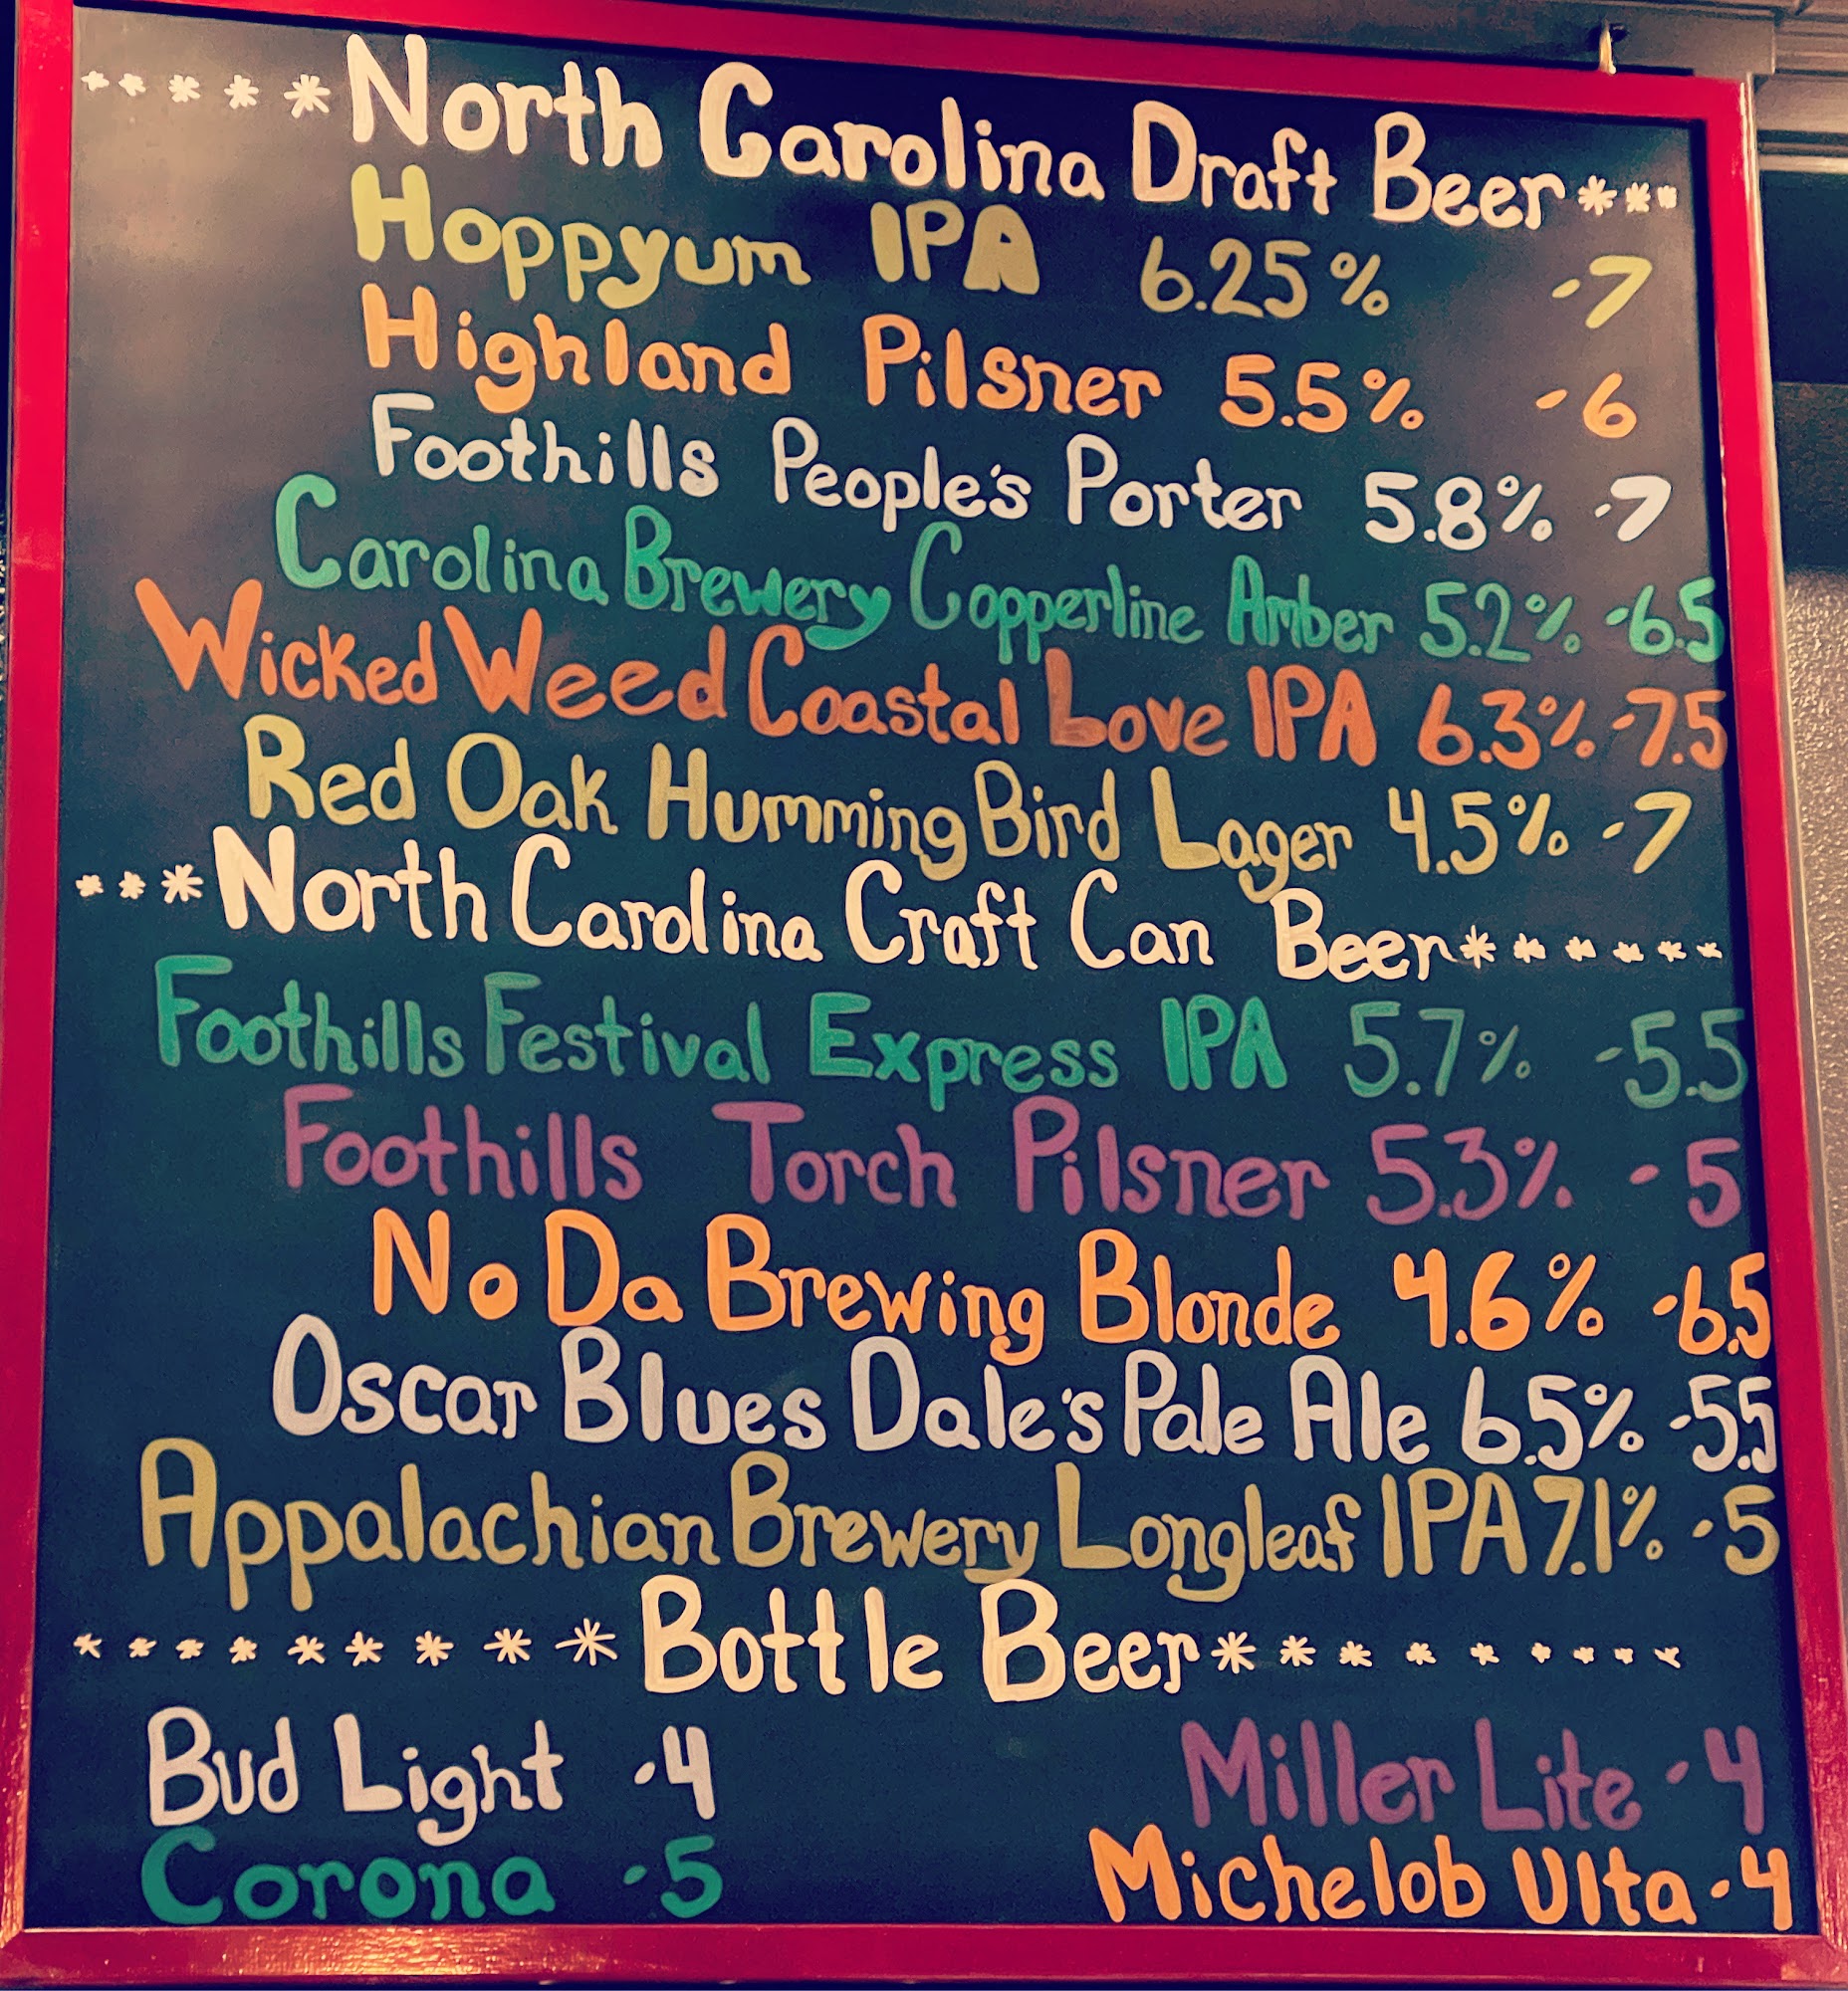 *****North Carolina Draft Beer***
Hoppyum IPA 6.25% -7
Highland Pilsner 5.5% -6
Foothills People's Porter 5.8% -7
Carolina Brewery Copperline Amber 5.2% -6.5
Wicked Weed Coastal Love IPA 6.3% -7.5
Red Oak Humming Bird Lager 4.5% -7
***North Carolina Craft Can Beer******
Foothills Festival Express IPA 5.7% -5.5
Foothills Torch Pilsner 5.3% -5
NoDa Brewing Blonde 4.6% -6.5
Oscar Blues Dale's Pale Ale 6.5% -5.5
Appalachian Brewery Longleaf IPA 7.1% -5
*********Bottle Beer*********
Bud Light -4 Miller Lite -4
Corona -5 Michelob Ulta -4